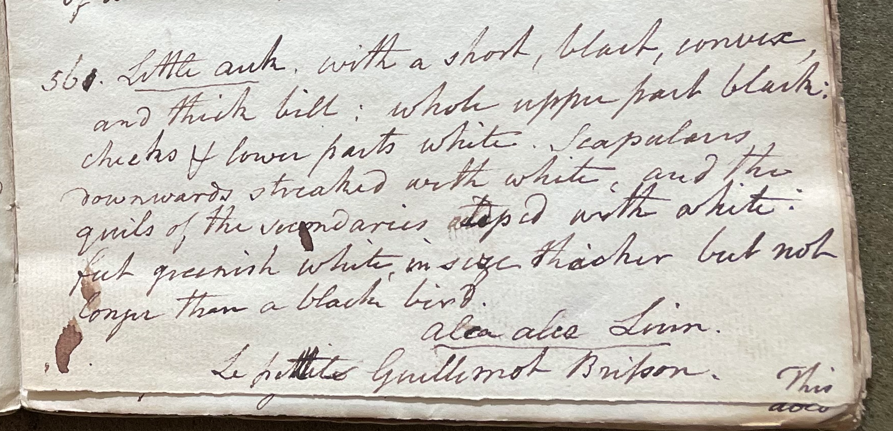 561. Little auk. with a short, black, convex,
and thick bill: whole upper part black:
cheeks & lower parts white. Scapulars
downwards streaked with white, and the
quils of the secondaries tiped with white:
feet greenish white, in size thicker but not
longer than a black bird.
alca alca Linn.
Le petite Guillemot Brisson.
This